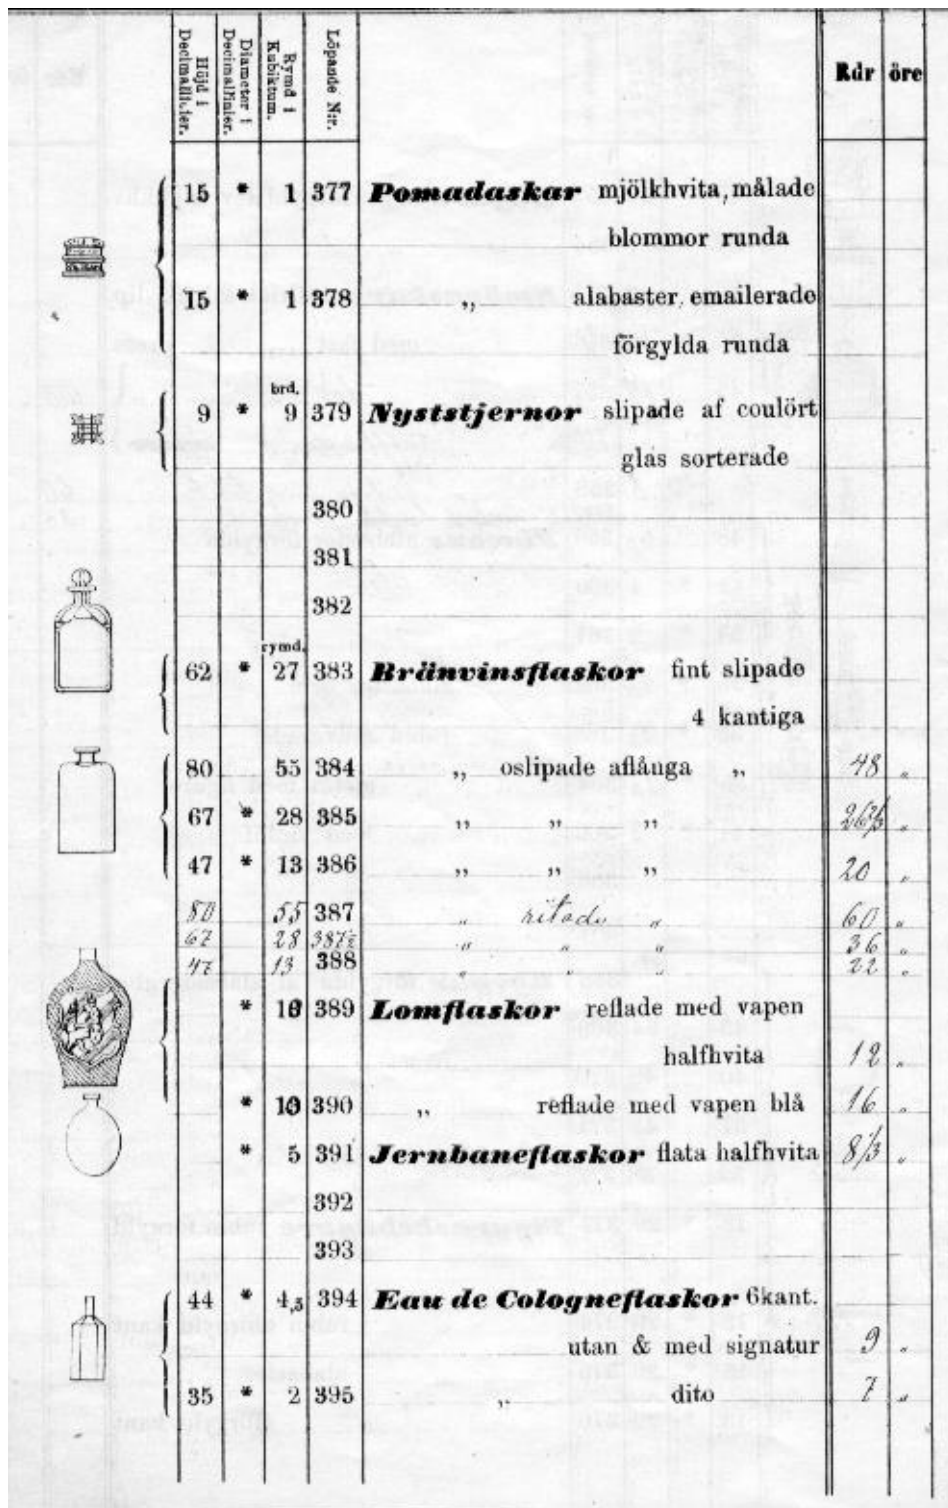 Höjd i Decimallinier. Diameter i Decimallinier. Rymd i Kubiktum. Löpande N:r. Rdr öre
15 * 1 377 Pomadaskar mjölkhvita, målade
blommor runda
15 * 1 378 „ alabaster, emailerade
förgylda runda
brd.
9 * 9 379 Nyststjernor slipade af coulört
glas sorterade
380
381
382
rymd.
62 * 27 383 Bränvinsflaskor fint slipade
4 kantiga
80 55 384 „ oslipade aflånga „ 48 „
67 * 28 385 „ „ „ 26 2/3 „
47 * 13 386 „ „ „ 20 „
80 55 387 „ ritade „ 60 „
67 28 387½ „ „ „ 36 „
47 13 388 „ „ „ 22 „
* 10 389 Lomflaskor reflade med vapen
halfhvita 12 „
* 10 390 „ reflade med vapen blå 16 „
* 5 391 Jernbaneflaskor flata halfhvita 8 1/3 „
392
393
44 * 4,5 394 Eau de Cologneflaskor 6kant.
utan & med signatur 9 „
35 * 2 395 „ dito 7 „